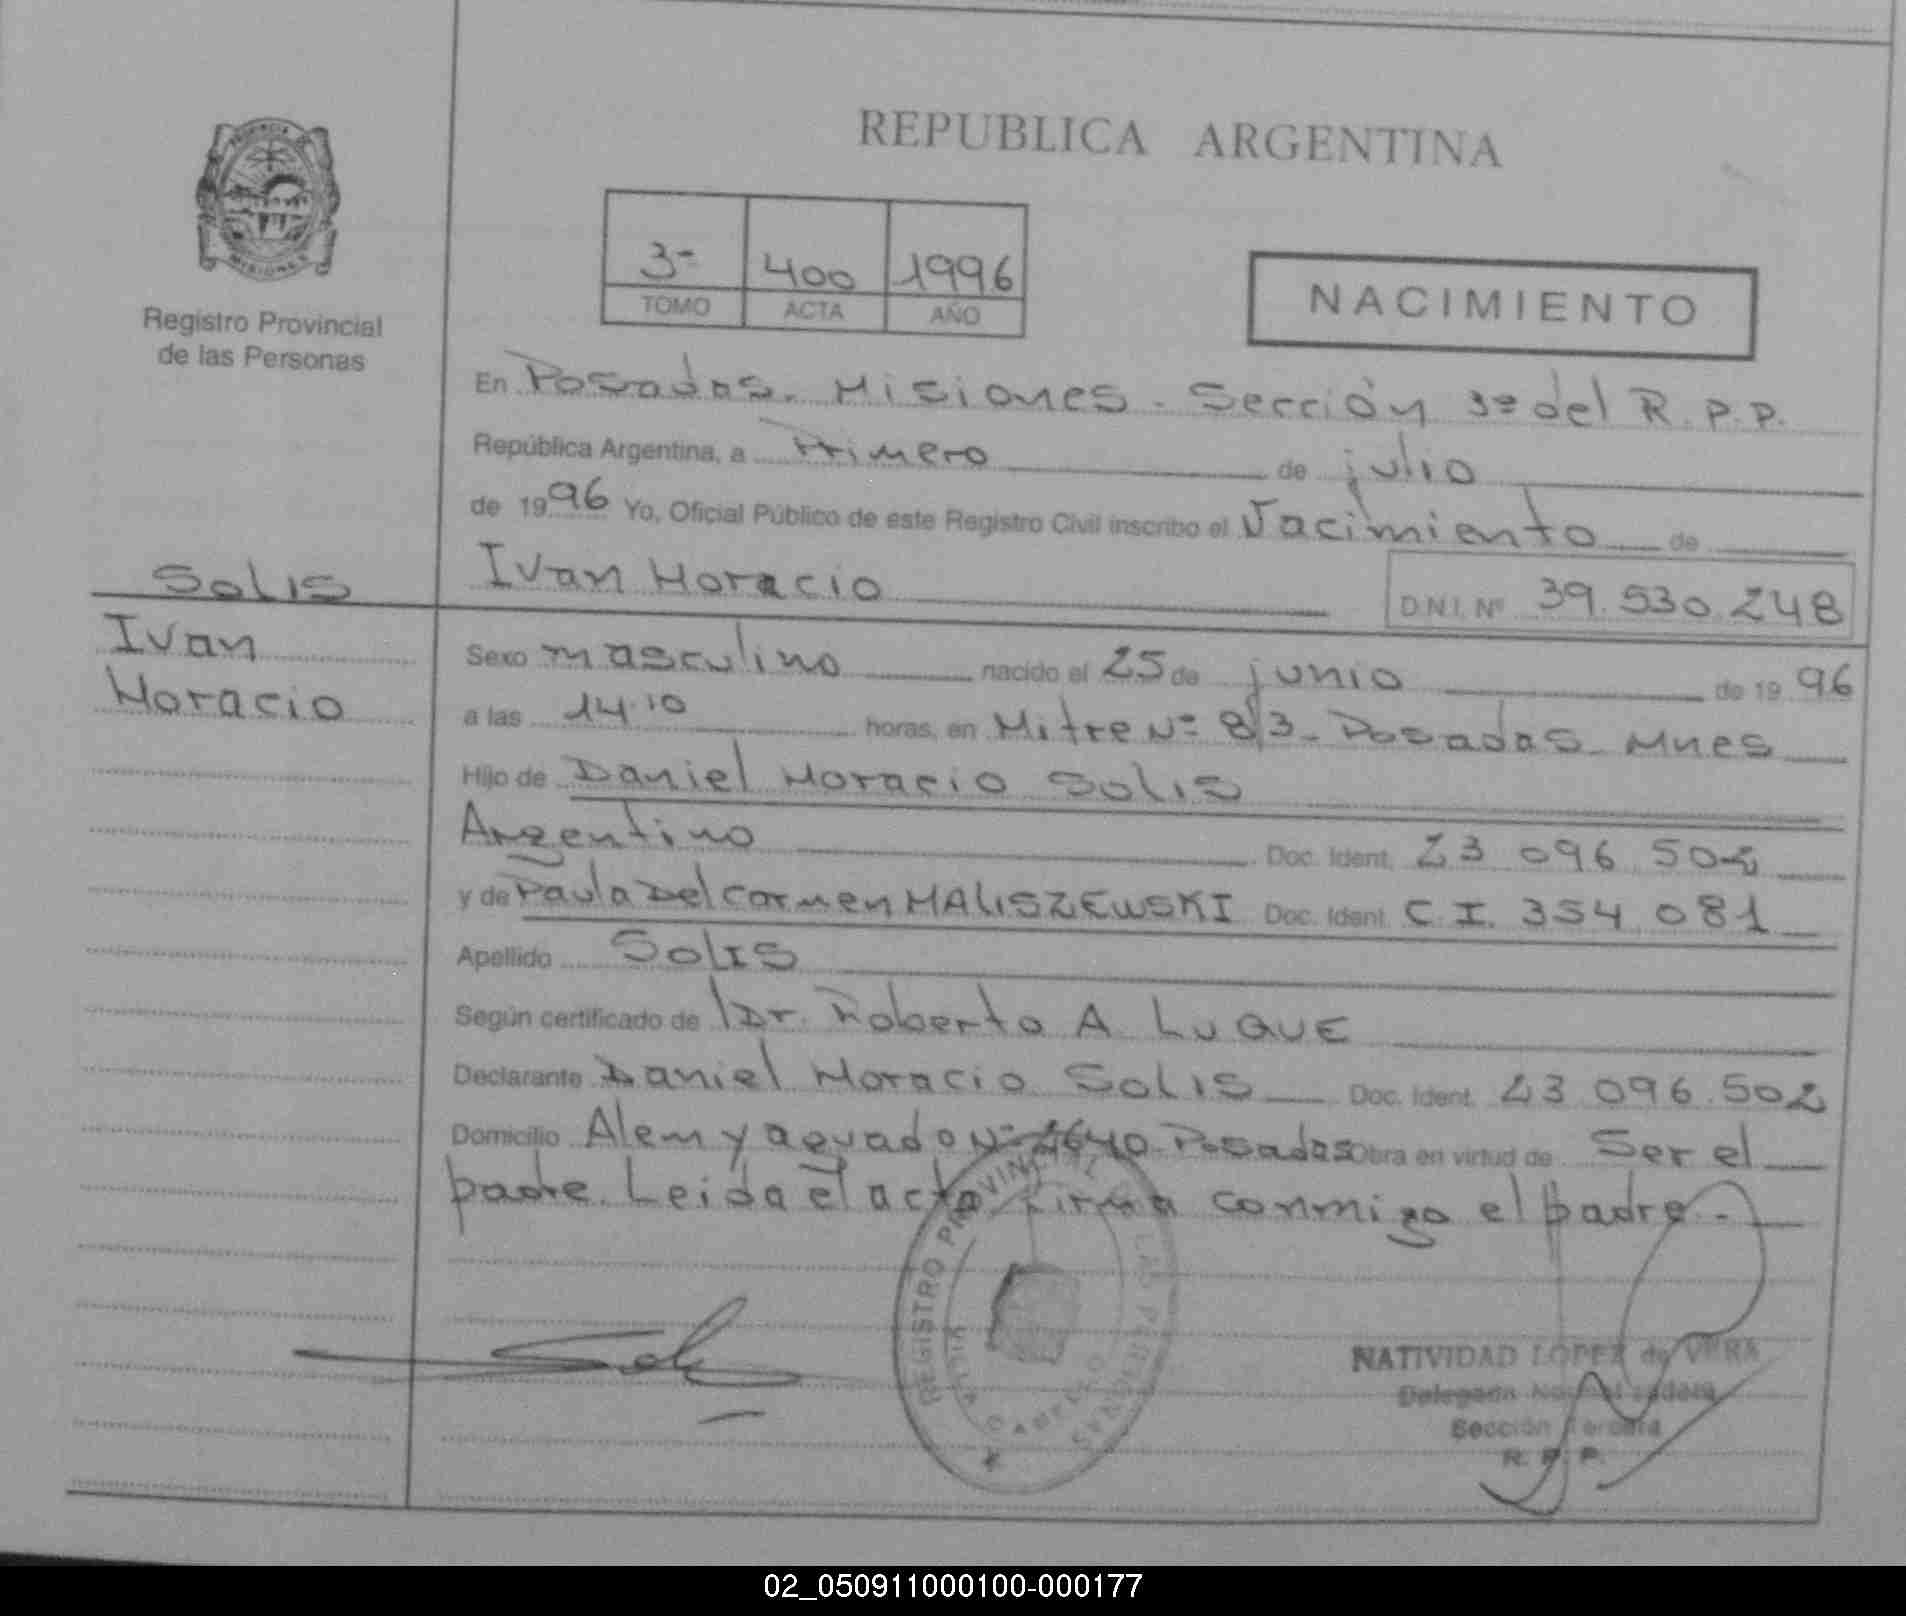 REPUBLICA ARGENTINA
MISIONES
Registro Provincial
de las Personas
3- 400 1996
TOMO ACTA AÑO
NACIMIENTO
En Posadas. Misiones. Sección 3ª del R.P.P.
República Argentina, a Primero de julio
de 1996 Yo, Oficial Público de este Registro Civil inscribo el Nacimiento de
Ivan Horacio D.N.I. Nº 39.530.248
SOLIS
Ivan
Horacio
Sexo masculino nacido el 25 de junio de 1996
a las 14.10 horas, en Mitre Nº 813 - Posadas - Mnes
Hijo de Daniel Horacio SOLIS
Argentino Doc. Ident. 23 096 502
y de Paula Del Carmen MALISZEWSKI Doc. Ident. C.I. 354 081
Apellido SOLIS
Según certificado de Dr. Roberto A LUQUE
Declarante Daniel Horacio SOLIS Doc. Ident. 23 096.502
Domicilio Alem y aguado Nº 2640 - Posadas Obra en virtud de Ser el
padre. Leida el acta firma conmigo el padre.-
REGISTRO PROVINCIAL DE LAS PERSONAS
VILLA CABELLO
NATIVIDAD LOPEZ de VERA
Sección Tercera
R. P. P.
02_050911000100-000177